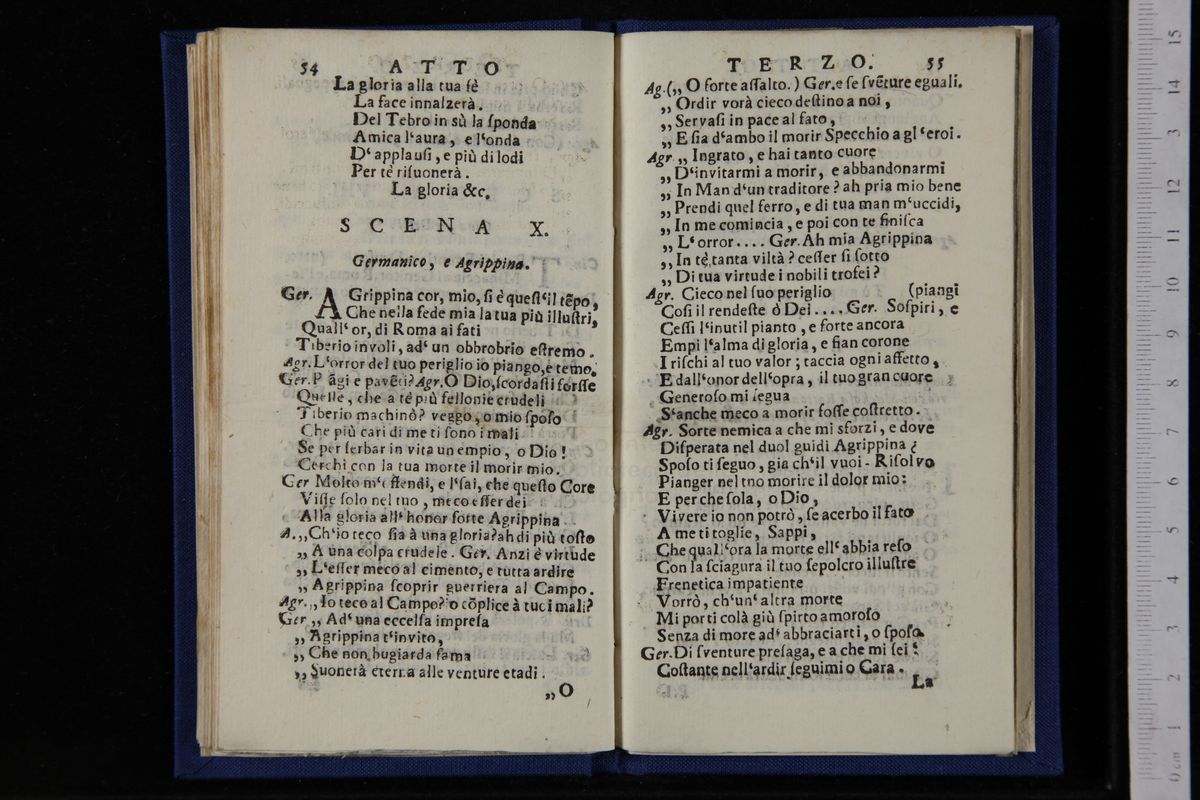 54 ATTO
La gloria alla tua fè
La face innalzerà.
Del Tebro in sù la ſponda
Amica l‘aura, e l‘onda
D‘ applauſi, e più di lodi
Per tè riſuonerà.
La gloria &c.
SCENA X.
Germanico, e Agrippina.
Ger. AGrippina cor, mio, ſi è queſt‘il tẽpo,
Che nella fede mia la tua più illuſtri,
Quall‘ or, di Roma ai fati
Tiberio involi, ad‘ un obbrobrio eſtremo.
Agr. L‘orror del tuo periglio io piango, e temo.
Ger. P ãgi e pavẽti? Agr. O Dio, ſcordaſti forſſe
Quelle, che a tè più fellonie crudeli
Tiberio machinò? veggo, o mio ſpoſo
Che più cari di me ti ſono i mali
Se per ſerbar in vita un empio, o Dio!
Cerchi con la tua morte il morir mio.
Ger Molto m‘c ffendi, e l‘ſai, che queſto Core
Viſſe ſolo nel tuo, meco eſſer dei
Alla gloria all‘ honor forte Agrippina
A. „Ch‘io teco ſia à una gloria? ah di più toſto
„ A una colpa crudele. Ger. Anzi è virtude
„ L‘eſſer meco al cimento, e tutta ardire
„ Agrippina ſcoprir guerriera al Campo.
Agr. „ Io teco al Campo? o cõplice à tuoi mali?
Ger „ Ad‘ una eccelſa impreſa
„ Agrippina t‘invito,
„ Che non bugiarda fama
„ Suonerà eterna alle venture etadi.
„O
TERZO. 55
Ag. („ O forte aſſalto.) Ger. e ſe ſvẽture eguali.
„ Ordir vorà cieco deſtino a noi,
„ Servaſi in pace al fato,
„ E ſia d‘ambo il morir Specchio a gl‘eroi.
Agr „ Ingrato, e hai tanto cuore
„ D‘invitarmi a morir, e abbandonarmi
„ In Man d‘un traditore? ah pria mio bene
„ Prendi quel ferro, e di tua man m‘uccidi,
„ In me comincia, e poi con te finiſca
„ L‘orror.... Ger. Ah mia Agrippina
„ In tè tanta viltà? ceſſer ſi ſotto
„ Di tua virtude i nobili trofei?
Agr. Cieco nel ſuo periglio (piangi
Coſi il rendeſte ò Dei.... Ger. Soſpiri, e
Ceſſi l‘inutil pianto, e forte ancora
Empi l‘alma di gloria, e ſian corone
I riſchi al tuo valor; taccia ogni affetto,
E dall‘onor dell‘opra, il tuo gran cuore
Generoſo mi ſegua
S‘anche meco a morir foſſe coſtretto.
Agr. Sorte nemica a che mi sforzi, e dove
Diſperata nel duol guidi Agrippina?
Spoſo ti ſeguo, gia ch‘il vuoi - Riſolvo
Pianger nel tno morire il dolor mio:
E perche ſola, o Dio,
Vivere io non potrò, ſe acerbo il fato
A me ti toglie, Sappi,
Che quali‘ora la morte ell‘ abbia reſo
Con la ſciagura il tuo ſepolcro illuſtre
Frenetica impatiente
Vorrò, ch‘un‘ altra morte
Mi porti colà giù ſpirto amoroſo
Senza dimore ad‘ abbraciarti, o ſpoſo.
Ger. Di ſventure preſaga, e a che mi ſei?
Coſtante nell‘ardir ſeguimi o Cara.
La
0 cm 1 2 3 4 5 6 7 8 9 10 11 12 13 14 15